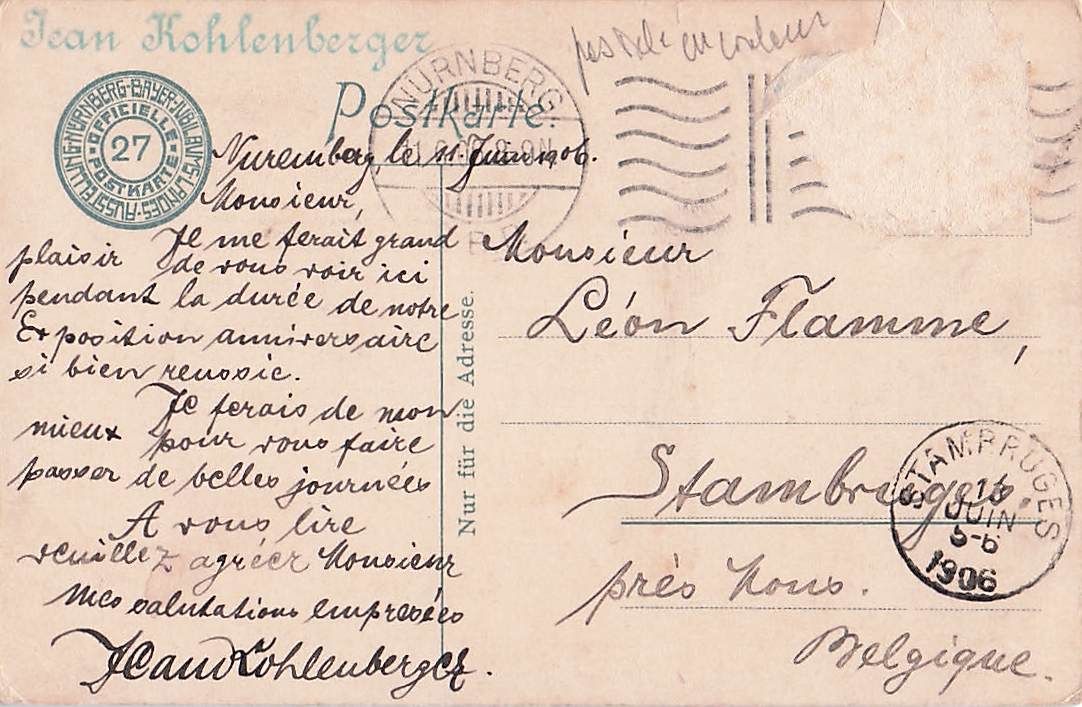 Jean Kohlenberger
NÜRNBERG-BAYER-JUBILÄUMS-LANDES-AUSSTELLUNG
OFFICIELLE
27
POSTKARTE
Postkarte.
NÜRNBERG
8-9N
Nuremberg, le 11 Juin 1906.
Monsieur,
Il me ferait grand
plaisir de vous voir ici
pendant la durée de notre
Exposition anniversaire
si bien reussie.
Je ferais de mon
mieux pour vous faire
passer de belles journées
A vous lire
veuillez agréer Monsieur
mes salutations empresées
Jean Kohlenberger.
Nur für die Adresse.
Monsieur
Léon Flamme,
Stambruges.
près Mons.
Belgique.
STAMBRUGES
JUIN
5-6
1906